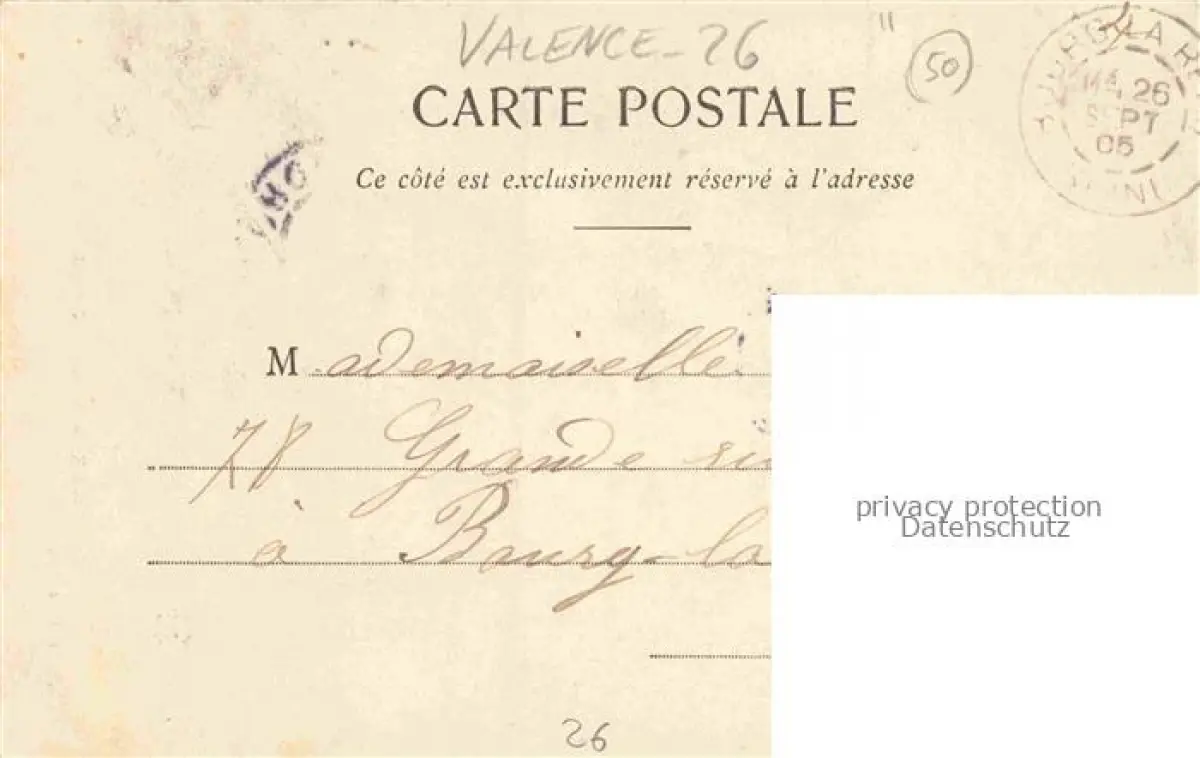 VALENCE-26
50
CARTE POSTALE
Ce côté est exclusivement réservé à l'adresse
BOURG-LA-R
26
SEPT
05
Mademoiselle
78 Grande
à Bourg-la
privacy protection
Datenschutz
26